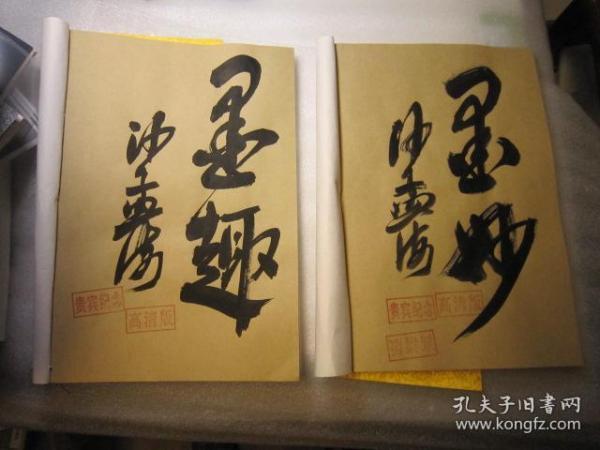 墨趣
沙孟海
贵宾纪念
高清版
墨妙
沙孟海
贵宾纪念
高清版
孔夫子旧书网
www.kongfz.com